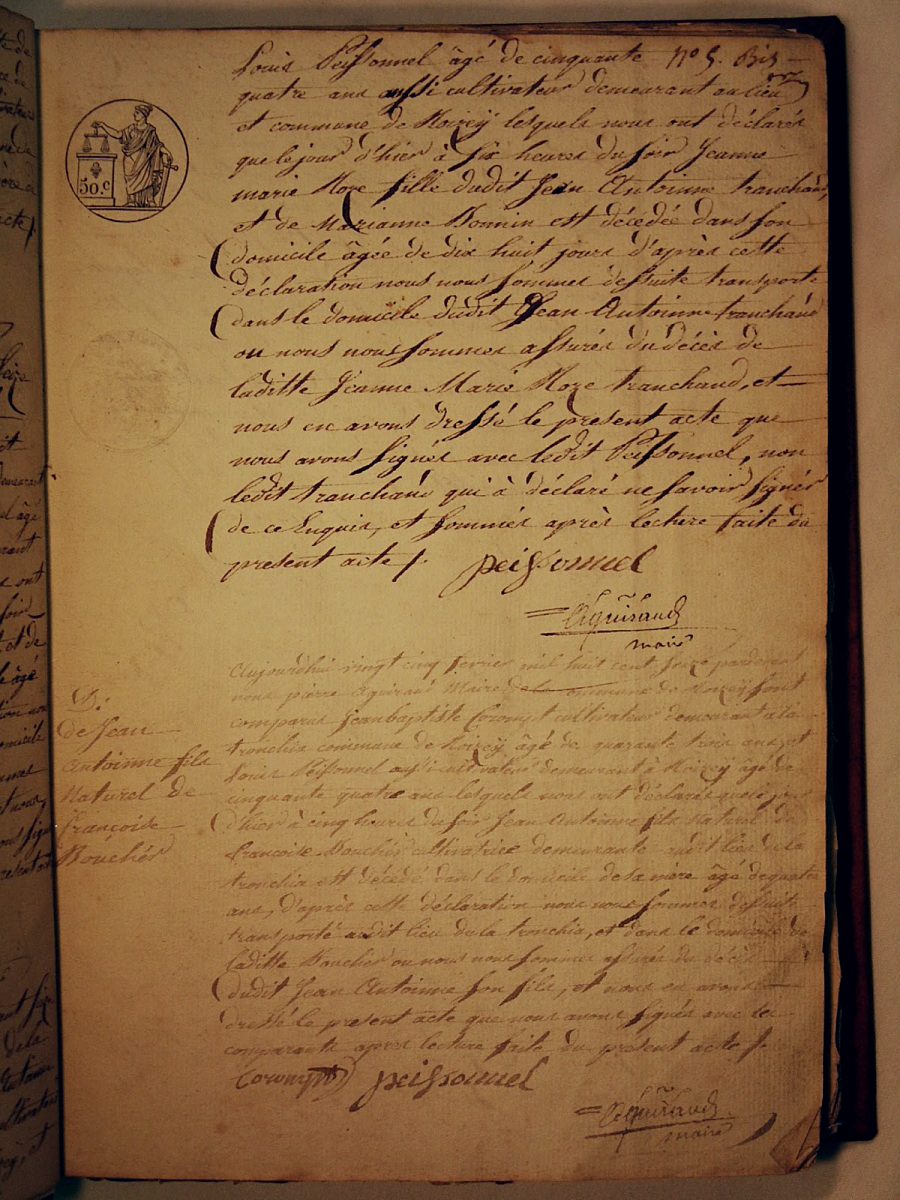 Louis Peissonnel âgé de cinquante N° 5. Bis
quatre ans aussi cultivateur demeurant au lieu
et commune de Roizey lesquels nous ont déclarés
que le jour d'hier à six heures du soir Jeanne
marie Roze fille dudit Jean Antoinne tranchand,
et de Marianne Bonnin est décedée dans son
domicile âgée de dix huit jours d'après cette
déclaration nous nous sommes desuite transporté
dans le domicile dudit Jean Antoinne tranchand
ou nous nous sommes assurés du décès de
laditte Jeanne Marie Roze tranchand, et
nous en avons dressé le present acte que
nous avons signés avec ledit Peissonnel, non
ledit tranchand qui à déclaré ne savoir signer
de ce Enquis, et sommés après lecture faite du
present acte /.
peissonnel
Aguiraud
maire
50.c
Aujourdhui vingt cinq fevrier mil huit cent seize pardevant
nous pierre Aguiraud Maire de la commune de Roizey sont
comparus Jean baptiste Corompt cultivateur demeurant à la
tronchia commune de Roizey âgé de quarante trois ans, et
Louis Peissonnel aussi cultivateur demeurant à Roizey âgé de
cinquante quatre ans lesquels nous ont déclarés que le jour
d'hier à cinq heures du soir Jean Antoinne fils Naturel de
francoise Bouchér cultivatrice demeurante audit lieu de la
tronchia est décédé dans le domicile de sa mère âgé de quatre
ans, d'après cette déclaration nous nous sommes desuite
transporté audit lieu de la tronchia, et dans le domicile de
laditte Boucher ou nous nous sommes assurés du décès
dudit Jean Antoinne son fils, et nous en avons
dressé le present acte que nous avons signés avec les
comparants apres lecture faite du present acte /.
Corompt peissonnel
Aguiraud
maire
D.:
de Jean
Antoinne fils
Naturel de
françoise
Bouchér